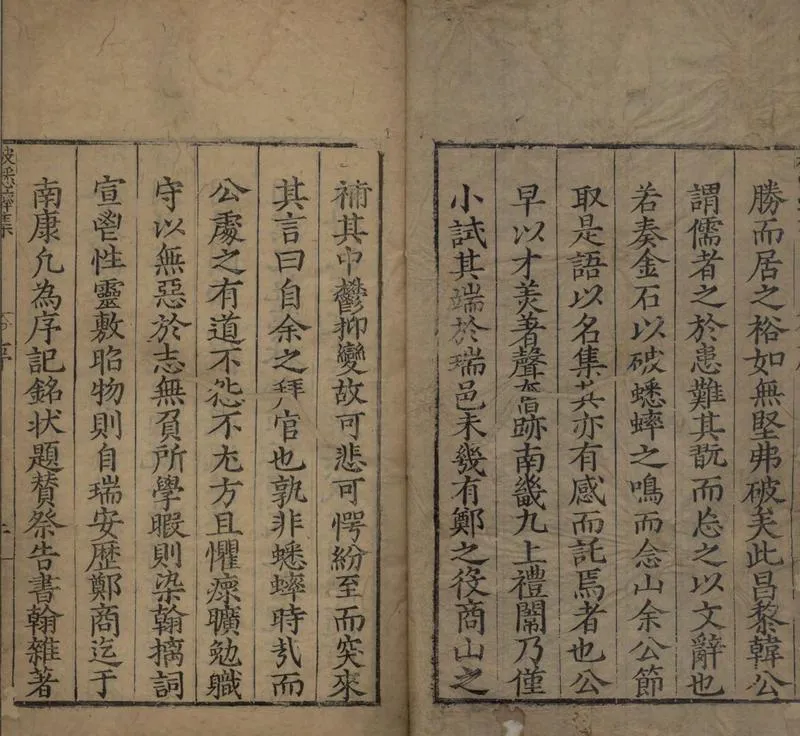 勝而居之裕如無堅弗破矣此昌黎韓公
謂儒者之於患難其翫而忘之以文辭也
若奏金石以破蟋蟀之鳴而念山余公節
取是語以名集其亦有感而託焉者也公
早以才美著聲奮跡南畿九上禮闈乃僅
小試其端於瑞邑未幾有鄭之役商山之
補其中鬱抑變故可悲可愕紛至而突來
其言曰自余之拜官也孰非蟋蟀時乎而
公處之有道不怨不尤方且懼瘝曠勉職
守以無惡於志無負所學暇則染翰摛詞
宣鬯性靈敷昭物則自瑞安歷鄭商迄于
南康凢為序記銘状題賛祭告書翰雜著